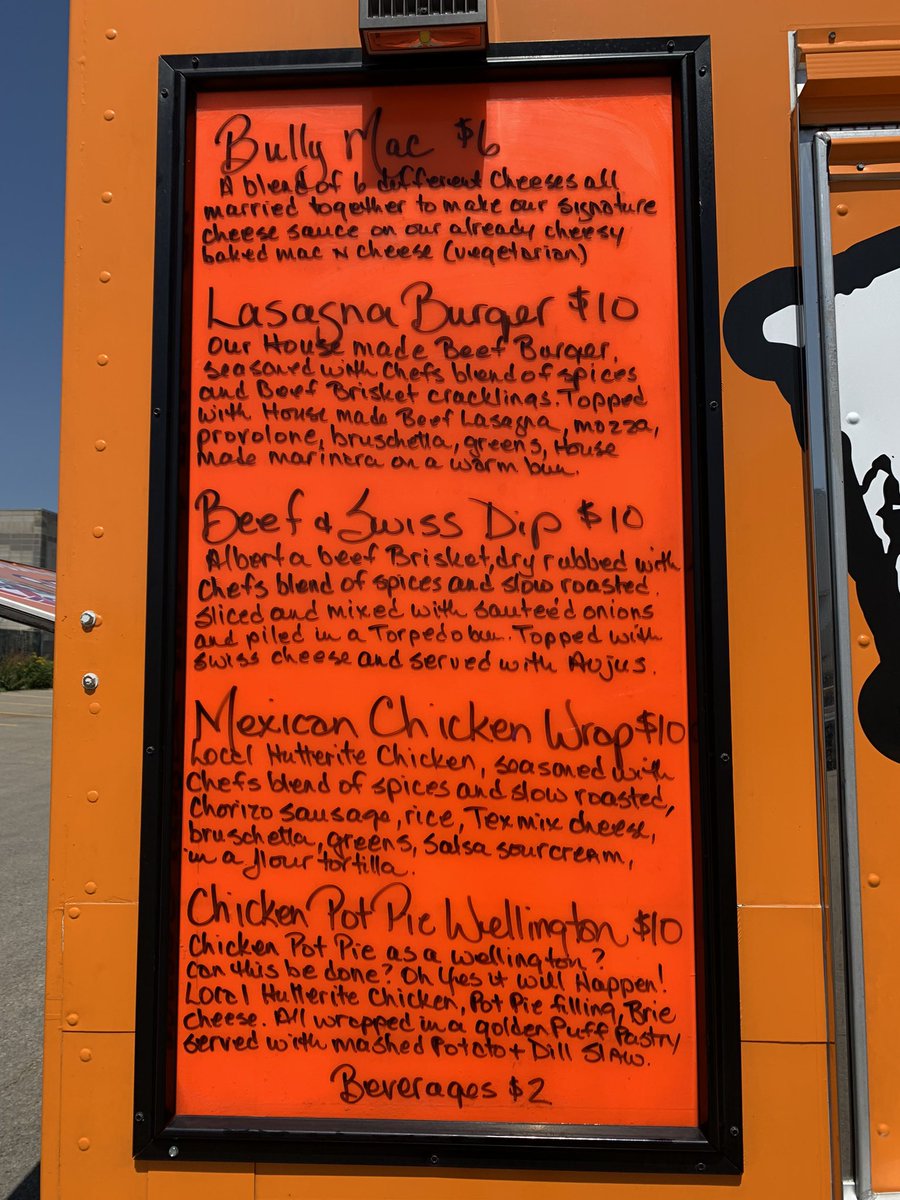 Bully Mac $6
A blend of 6 different Cheeses all
married together to make our signature
cheese sauce on our already cheesy
baked mac N cheese (vegetarian)
Lasagna Burger $10
Our House made Beef Burger,
seasoned with Chefs blend of spices
and Beef Brisket cracklings. Topped
with House made Beef Lasagna, mozza,
provolone, bruschetta, greens, House
made marinera on a warm bun.
Beef & Swiss Dip $10
Alberta beef Brisket, dry rubbed with
Chefs blend of spices and slow roasted.
sliced and mixed with sauteéd onions
and piled in a Torpedo bun. Topped with
swiss cheese and served with Aujus.
Mexican Chicken Wrap $10
Local Hutterite Chicken, seasoned with
Chefs blend of spices and slow roasted,
Chorizo sausage, rice, Tex mix cheese,
bruschetta, greens, Salsa sourcream,
in a flour tortilla.
Chicken Pot Pie Wellington $10
Chicken Pot Pie as a wellington?
Can this be done? Oh Yes it will Happen!
Local Hutterite Chicken, Pot Pie filling, Brie
cheese. All wrapped in a golden Puff Pastry
served with mashed Potato + Dill Slaw.
Beverages $2